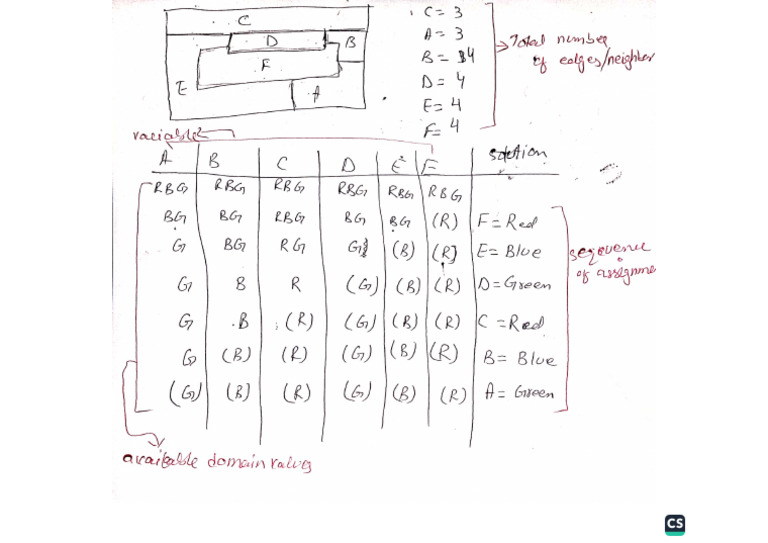 C
D
B
F
E
A
C = 3
A = 3
B = 4
D = 4
E = 4
F = 4
Total number
of edges/neighbor
variables
A B C D E F Solution
RBG RBG RBG RBG RBG RBG
BG BG RBG BG BG (R) F = Red
G BG RG G (B) (R) E = Blue
G B R (G) (B) (R) D = Green
G B (R) (G) (B) (R) C = Red
G (B) (R) (G) (B) (R) B = Blue
(G) (B) (R) (G) (B) (R) A = Green
of assignme
available domain values
CS